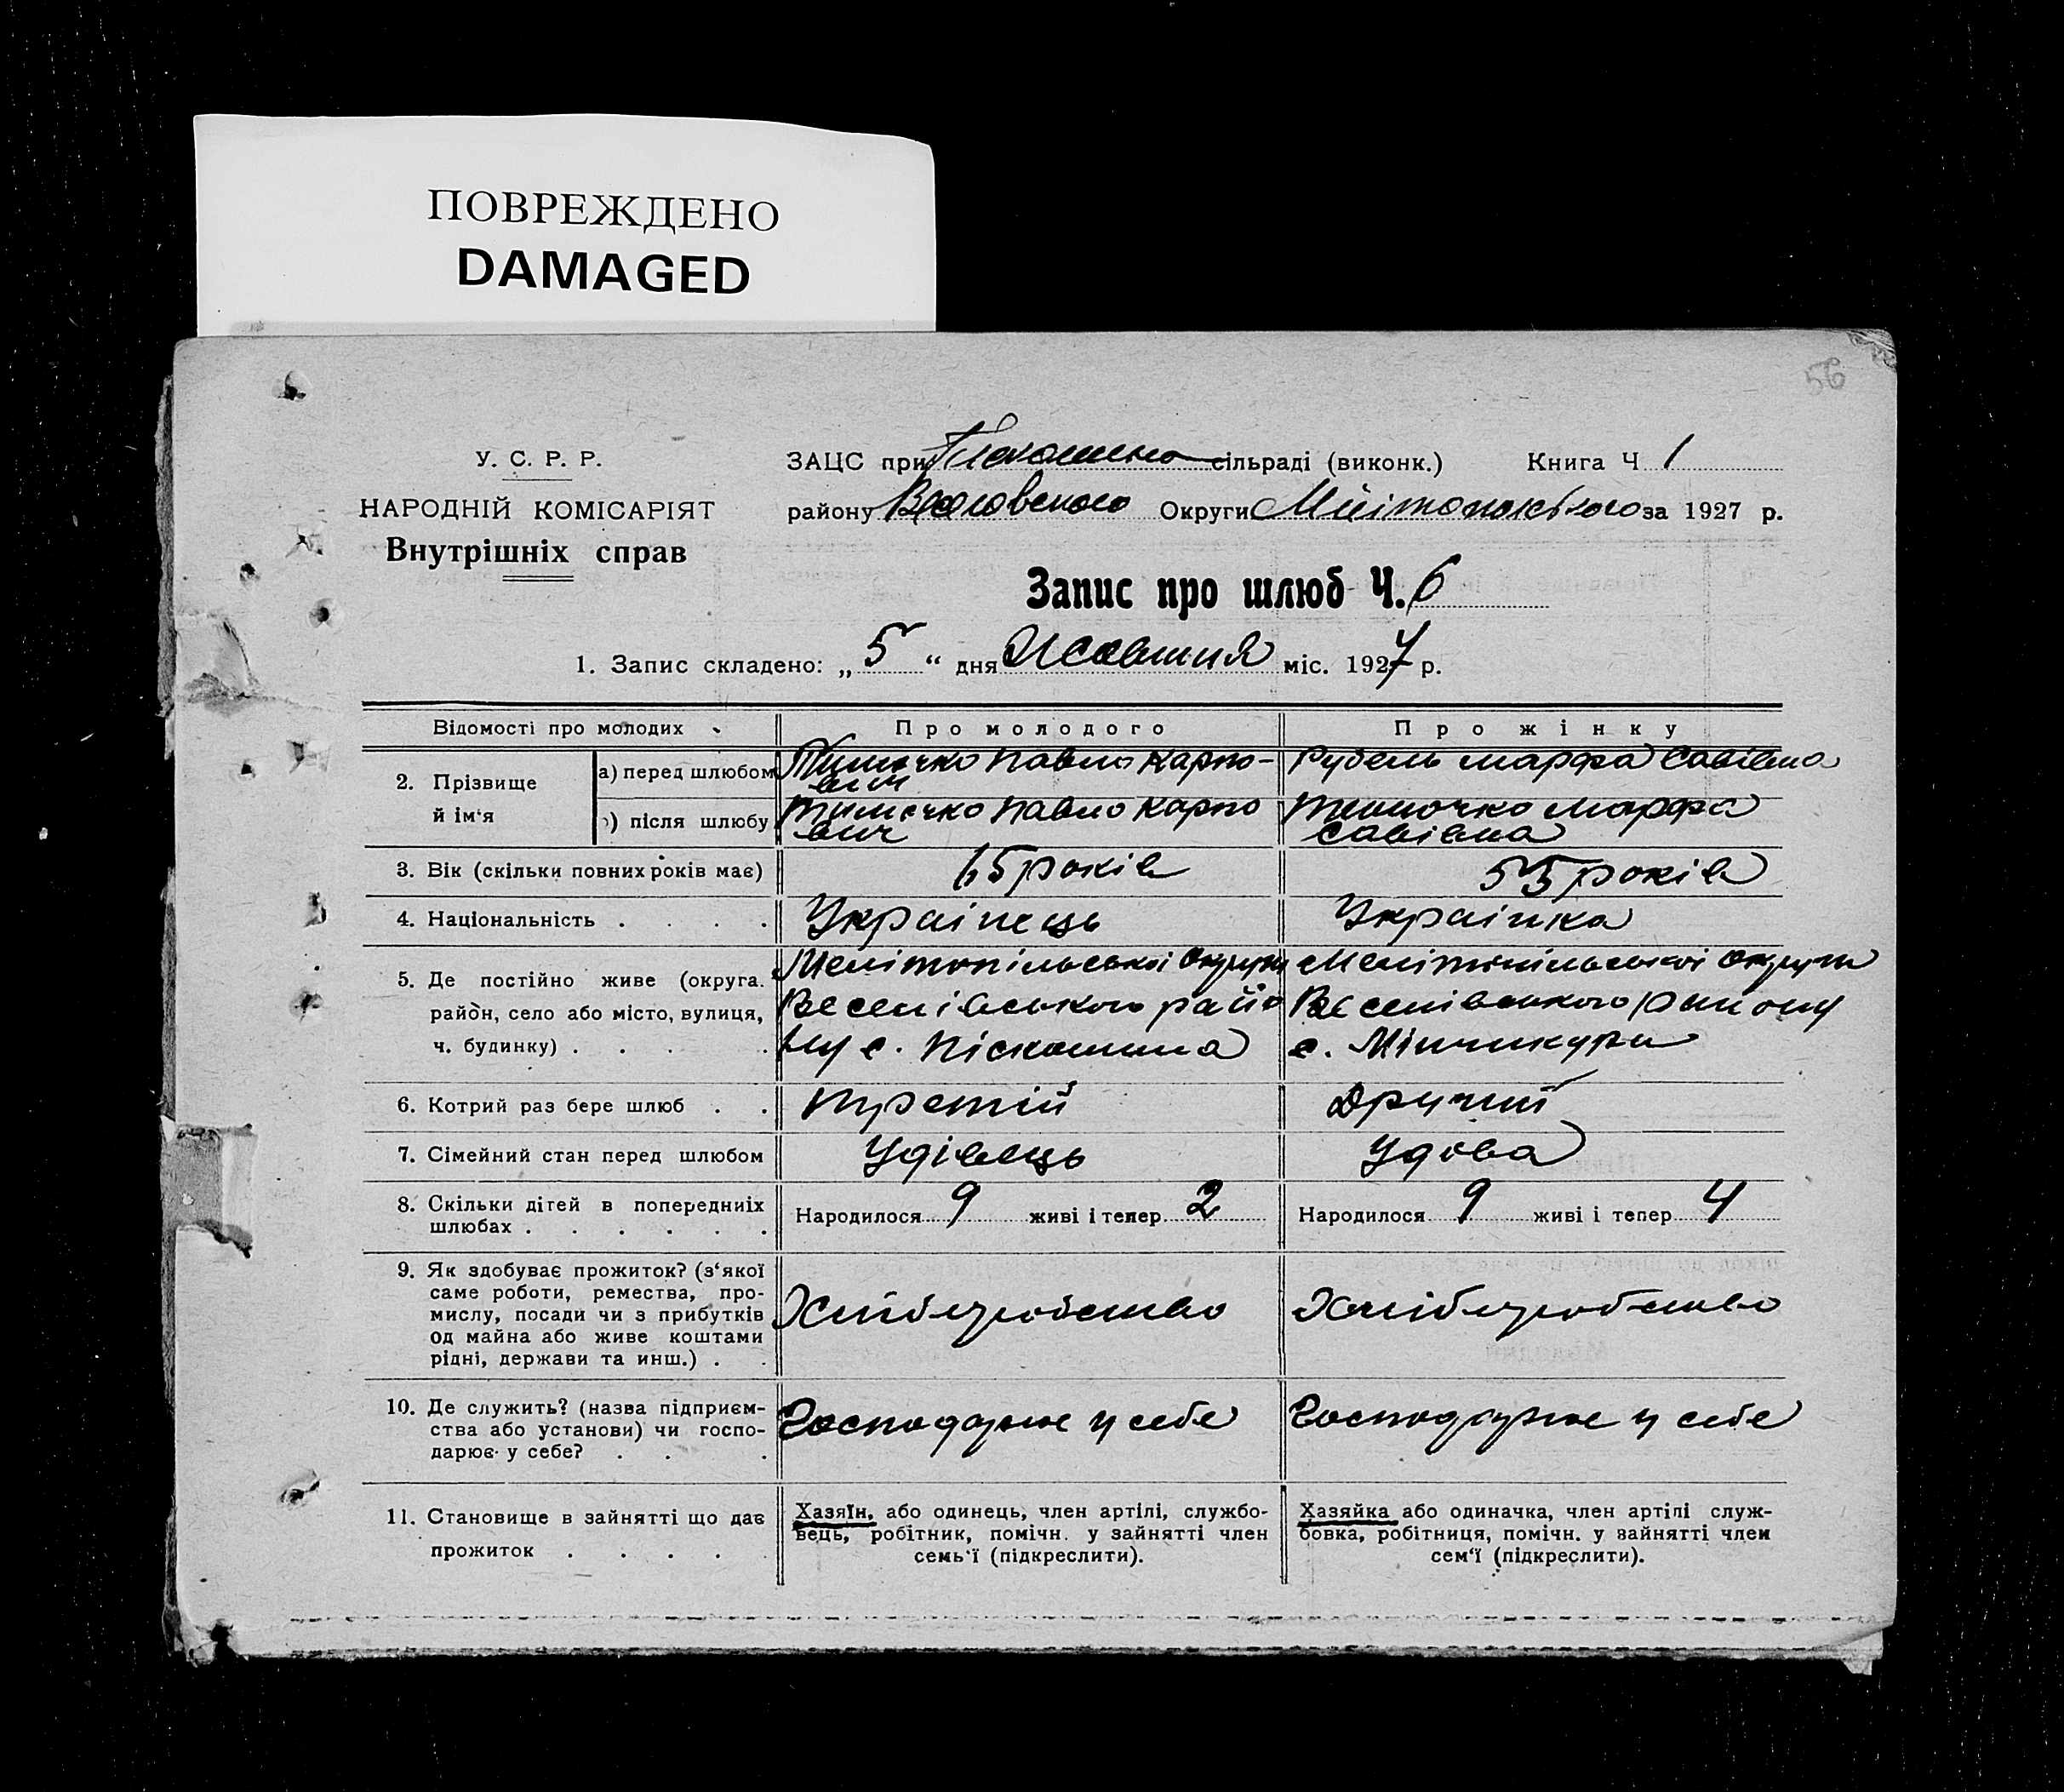 ПОВРЕЖДЕНО
DAMAGED
56
У. С. Р. Р.
НАРОДНІЙ КОМІСАРІЯТ
Внутрішніх справ
ЗАЦС при сільраді (виконк.) Книга Ч 1
району Округи за 1927 р.
Запис про шлюб Ч. 6
1. Запис складено: „ 5 “ дня міс. 1927 р.
Відомості про молодих
Про молодого
Про жінку
2. Прізвище й ім‘я
а) перед шлюбом
Тимочко Павло Карпо-
вич
Рубель Марфа Савівна
) після шлюбу
Тимочко Павло Карпо
вич
Тимочко Марфа
Савівна
3. Вік (скільки повних років має)
65 років
55 років
4. Національність . . . .
Украінець
Украінка
5. Де постійно живе (округа.
район, село або місто, вулиця,
ч. будинку) . . . .
Мелітопільськоі Округи
Веселівського райо
ну с. Піскошина
Мелітопільськоі Округи
Веселівського району
с. Мінчикури
6. Котрий раз бере шлюб . .
третій
Другий
7. Сімейний стан перед шлюбом
Удівець
Удова
8. Скільки дітей в попередниіх
шлюбах . . . . . .
Народилося 9 живі і тепер 2
Народилося 9 живі і тепер 4
9. Як здобуває прожиток? (з‘якої
саме роботи, ремества, про-
мислу, посади чи з прибутків
од майна або живе коштами
рідні, держави та инш.) . .
Хліборобство
Хліборобство
10. Де служить? (назва підприєм-
ства або установи) чи госпо-
дарює у себе? . . .
Господарює у себе
Господарює у себе
11. Становище в зайнятті що дає
прожиток . . . . .
Хазяїн, або одинець, член артілі, службо-
вець, робітник, помічн. у зайнятті член
семь‘ї (підкреслити).
Хазяйка або одиначка, член артілі служ-
бовка, робітниця, помічн. у зайнятті член
сем‘ї (підкреслити).